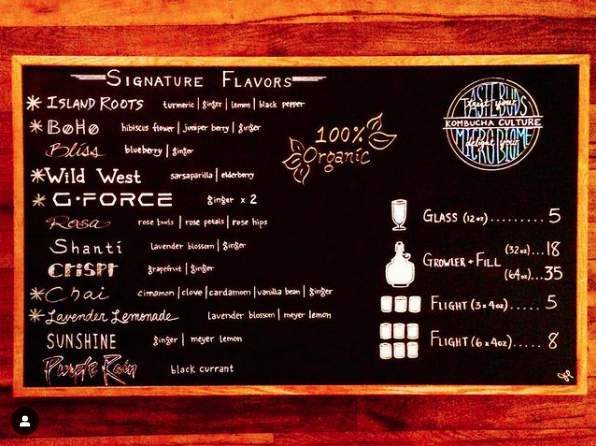 SIGNATURE FLAVORS
* ISLAND ROOTS turmeric | ginger | lemon | black pepper
* BOHO hibiscus flower | juniper berry | ginger
Bliss blueberry | ginger
* Wild West sarsaparilla | elderberry
* G-FORCE ginger x 2
Rosa rose buds | rose petals | rose hips
Shanti lavender blossom | ginger
CRISPR grapefruit | ginger
* Chai cinnamon | clove | cardamom | vanilla bean | ginger
* Lavender Lemonade lavender blossom | meyer lemon
SUNSHINE ginger | meyer lemon
Purple Rain black currant
100%
Organic
TASTEBUDS
trust your
KOMBUCHA CULTURE
delight your
MICROBIOME
GLASS (12oz) ......... 5
GROWLER + FILL (32oz)...18
(64oz)...35
FLIGHT (3x4oz) ...... 5
FLIGHT (6x4oz)..... 8